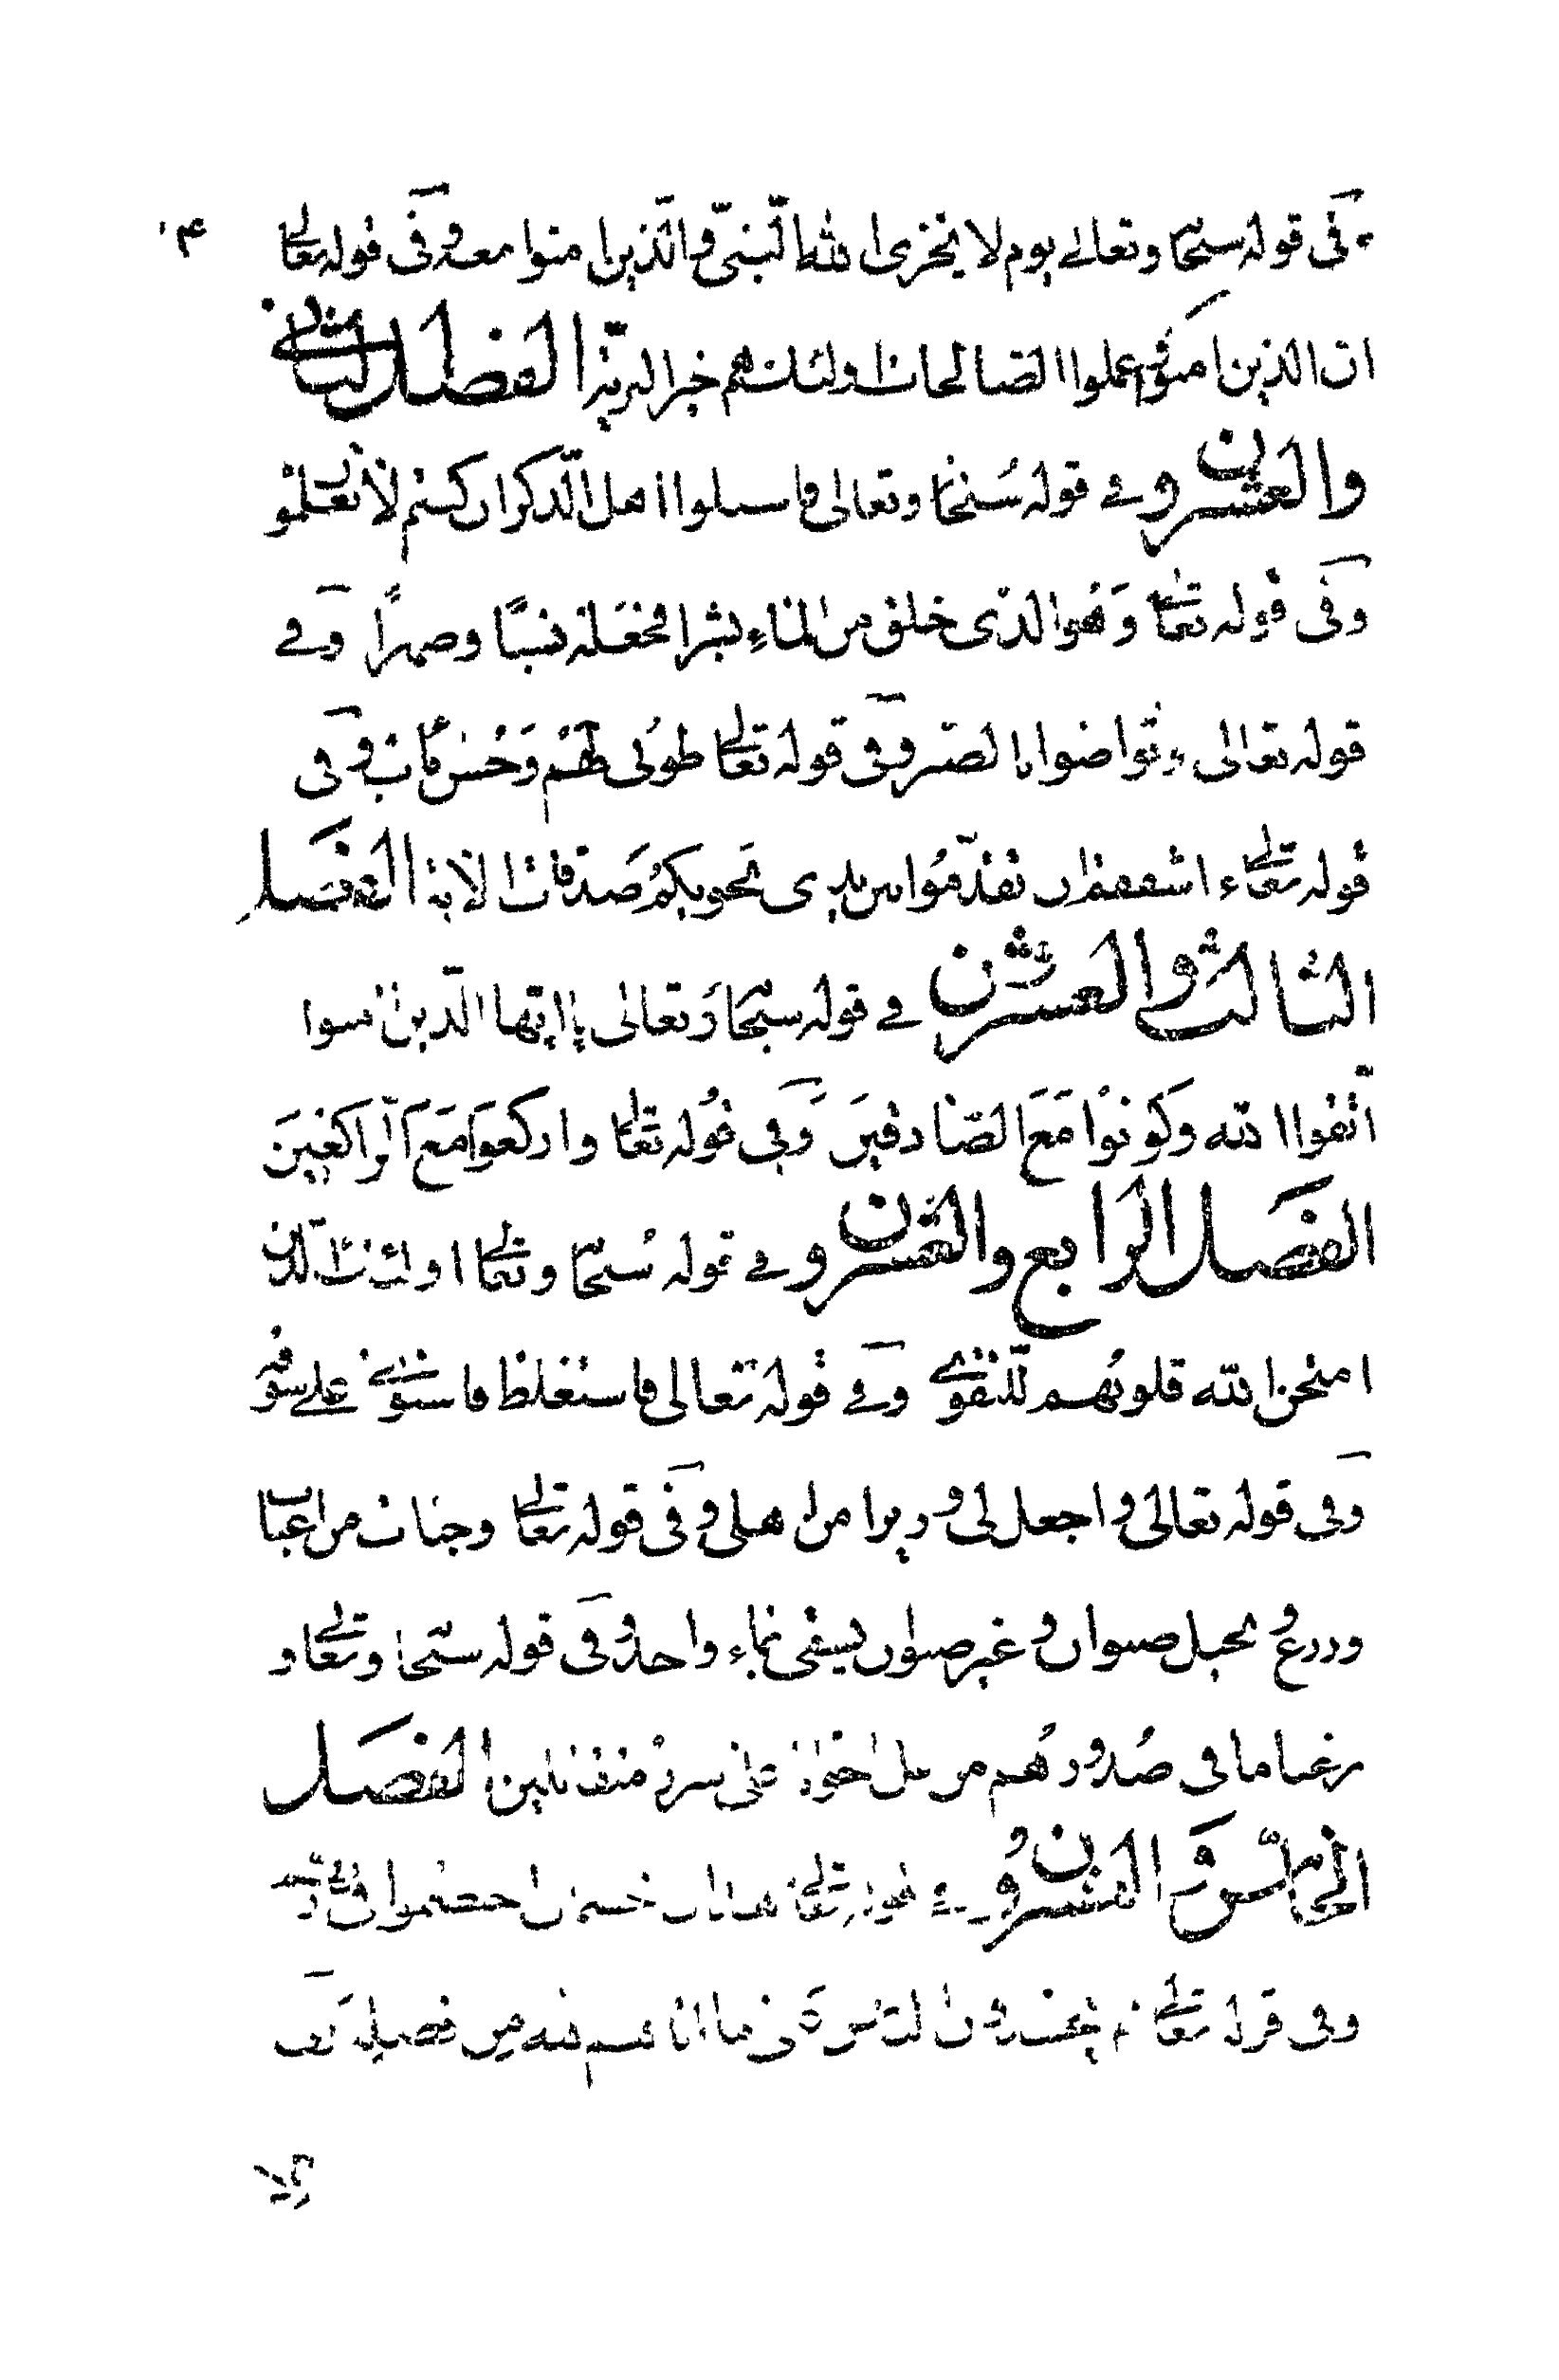 وفى قوله سبحانه وتعالى يوم لا يخزى الله النبى والذين امنوا معه وفى قوله تعالى ۴
ان الذين امنوا وعملوا الصالحات اولئك هم خير البرية الفصل الثانى
والعشرون فى قوله سبحانه وتعالى فاسئلوا اهل الذكر ان كنتم لا تعلمون
وفى قوله تعالى وهو الذى خلق من الماء بشرا فجعله نسبًا وصهرًا وفى
قوله تعالى وتواصوا بالصبر وفى قوله تعالى طوبى لهم وحسن مآب وفى
قوله تعالى ءاشفقتم ان تقدموا بين يدى نجويكم صدقات الاية الفصل
الثالث والعشرون فى قوله سبحانه وتعالى يا ايها الذين امنوا
اتقوا الله وكونوا مع الصادقين وفى قوله تعالى واركعوا مع الراكعين
الفصل الرابع والعشرون فى قوله سبحانه وتعالى اولئك الذين
امتحن الله قلوبهم للتقوى وفى قوله تعالى فاستغلظ فاستوى على سوقه
وفى قوله تعالى واجعل لى وزيرا من اهلى وفى قوله تعالى وجنات من اعناب
وزرع ونخيل صنوان وغير صنوان يسقى بماء واحد وفى قوله سبحانه وتعالى و
نزعنا ما فى صدورهم من غل اخوانا على سرر متقابلين الفصل
الخامس والعشرون فى قوله تعالى هذان خصمان اختصموا فى ربهم
وفى قوله تعالى ام يحسدون الناس على ما اتاهم الله من فضله